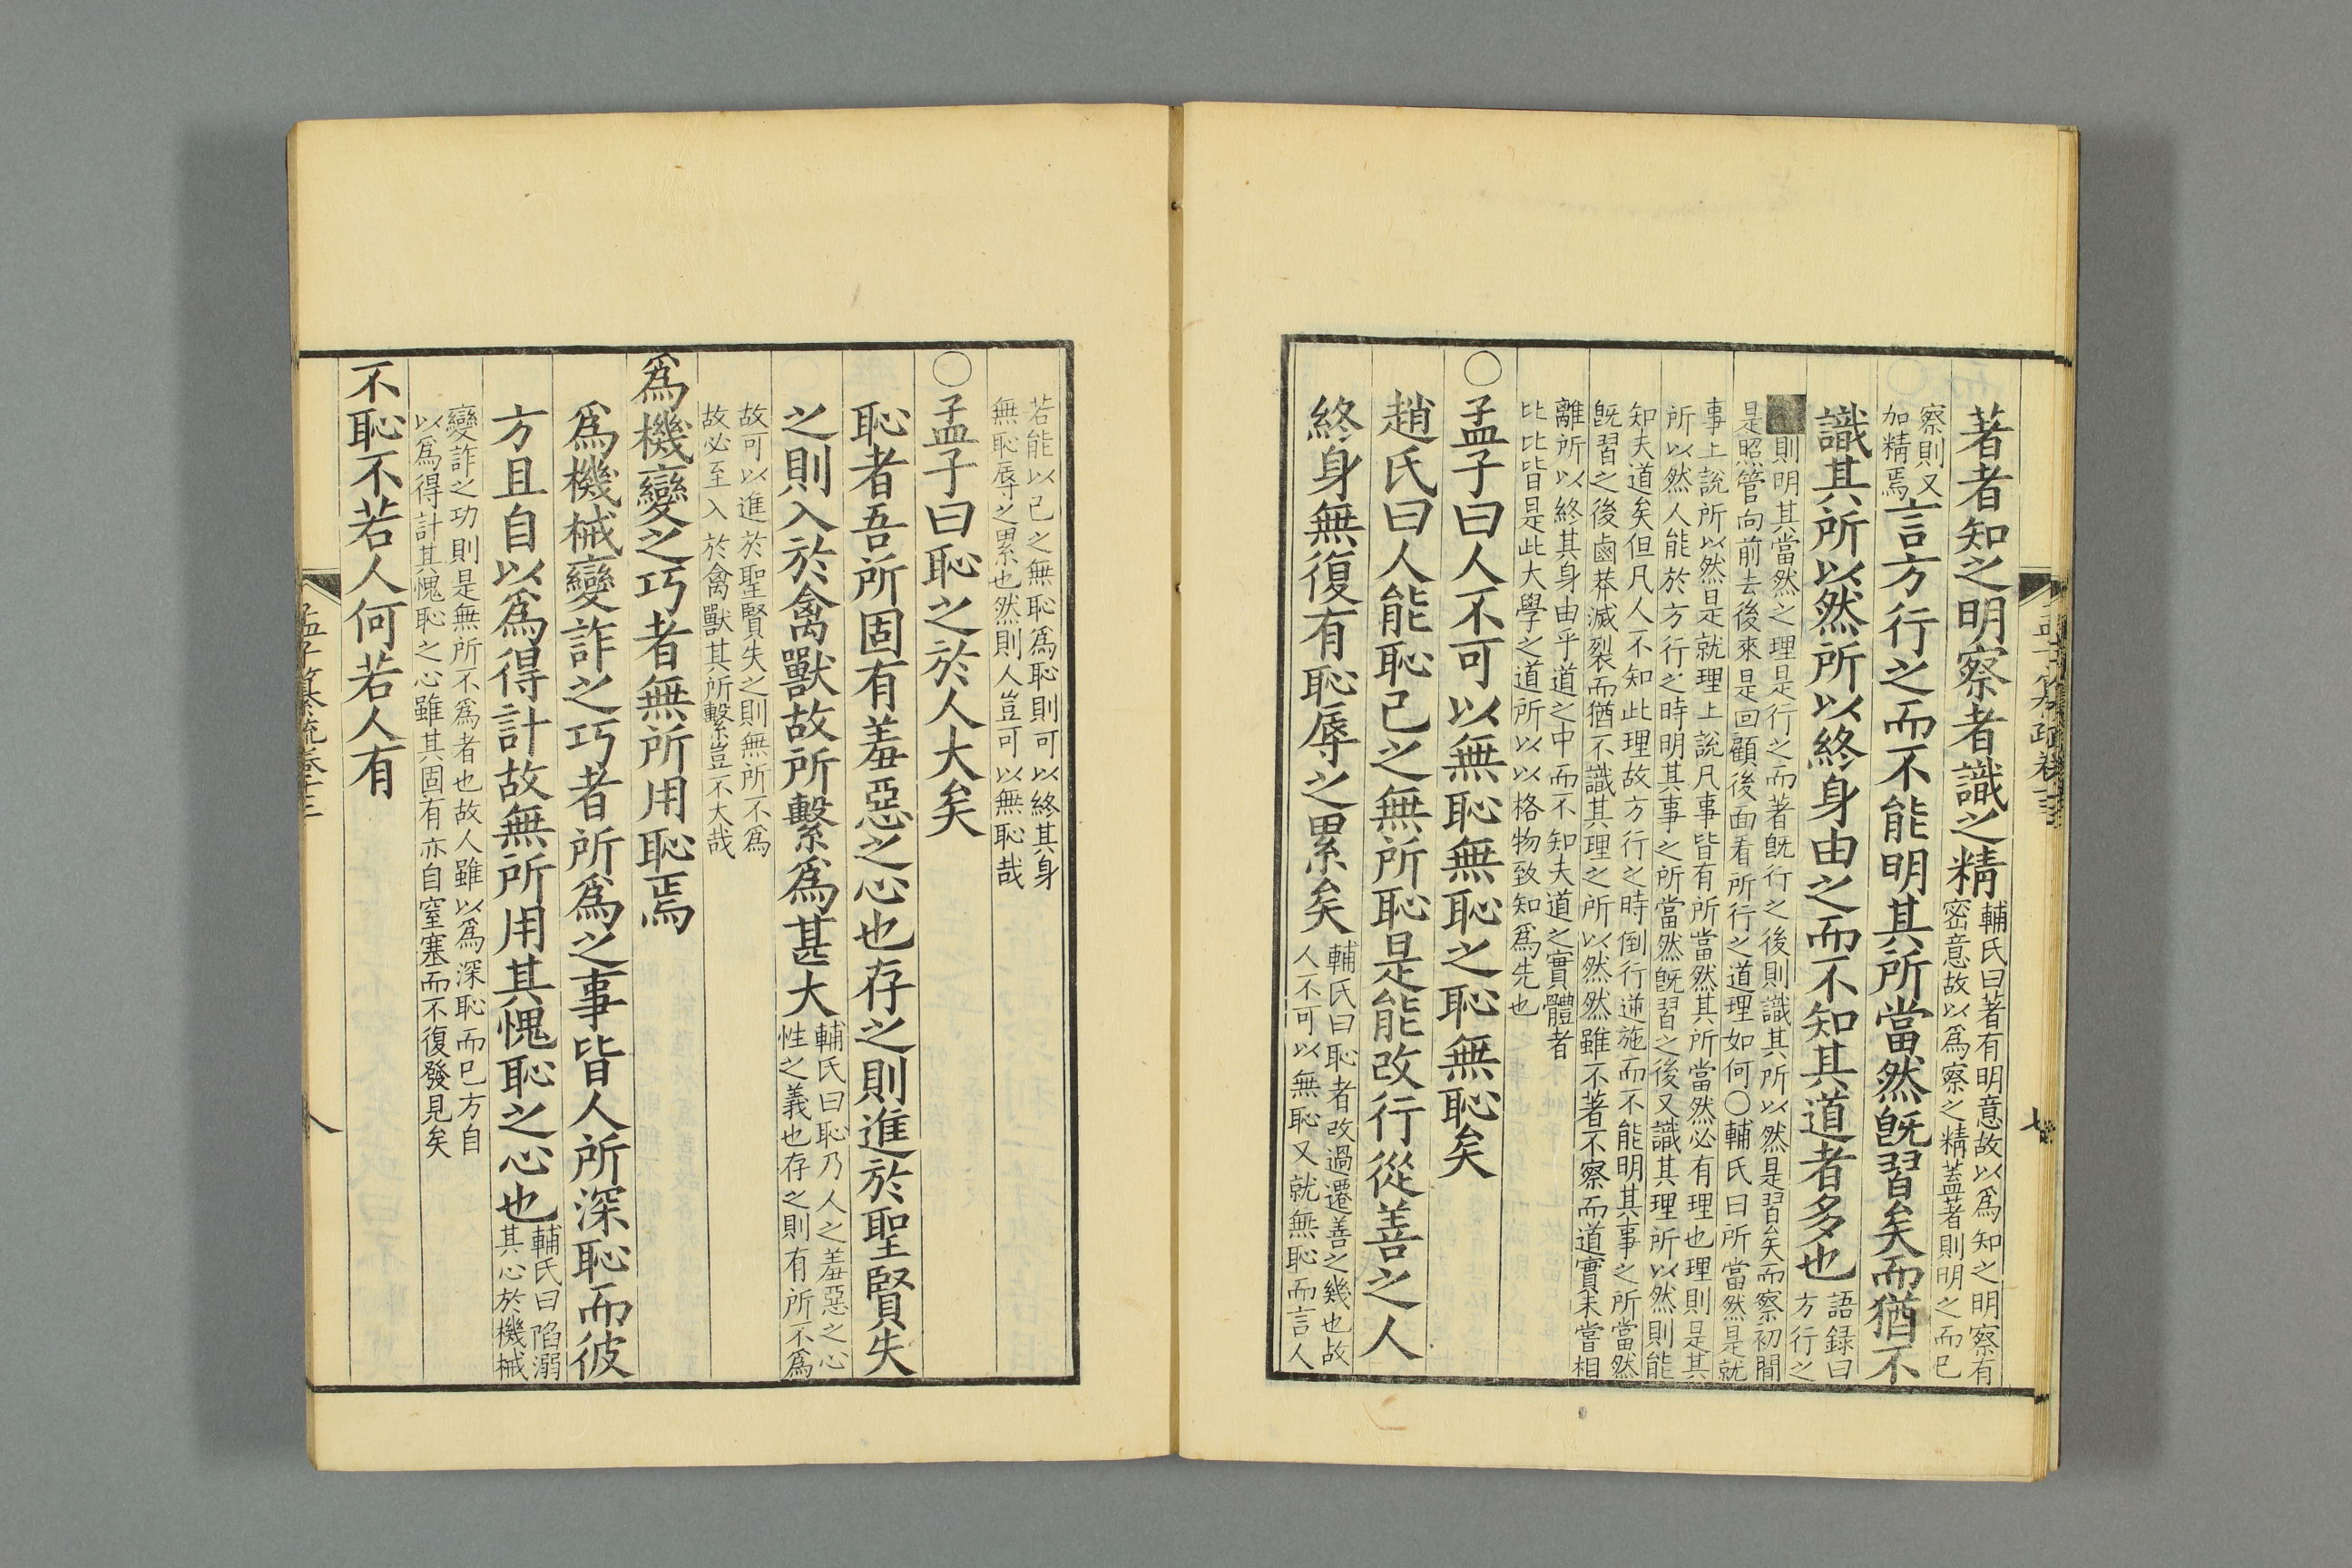 著者知之明察者識之精輔氏曰著有明意故以為知之明察有
密意故以為察之精蓋著則明之而已
察則又
加精焉言方行之而不能明其所當然既習矣而猶不
識其所以然所以終身由之而不知其道者多也語録曰
方行之
則明其當然之理是行之而著既行之後則識其所以然是習矣而察初間
是照管向前去後來是回顧後面看所行之道理如何〇輔氏曰所當然是就
事上説所以然是就理上説凡事皆有所當然其所當然必有理也理則是其
所以然人能於方行之時明其事之所當然既習之後又識其理所以然則能
知夫道矣但凡人不知此理故方行之時倒行逆施而不能明其事之所當然
既習之後鹵莽滅裂而猶不識其理之所以然然雖不著不察而道實未嘗相
離所以終其身由乎道之中而不知夫道之實體者
比比皆是此大學之道所以以格物致知為先也
〇孟子曰人不可以無恥無恥之恥無恥矣
趙氏曰人能恥己之無所恥是能改行從善之人
終身無復有恥辱之累矣輔氏曰恥者改過遷善之幾也故
人不可以無恥又就無恥而言人
若能以己之無恥為恥則可以終其身
無恥辱之累也然則人豈可以無恥哉
〇孟子曰恥之於人大矣
恥者吾所固有羞惡之心也存之則進於聖賢失
之則入於禽獸故所繫為甚大輔氏曰恥乃人之羞惡之心
性之義也存之則有所不為
故可以進於聖賢失之則無所不為
故必至入於禽獸其所繫豈不大哉
為機變之巧者無所用恥焉
為機械變詐之巧者所為之事皆人所深恥而彼
方且自以為得計故無所用其愧恥之心也輔氏曰陷溺
其心於機械
變詐之功則是無所不為者也故人雖以為深恥而已方自
以為得計其愧恥之心雖其固有亦自窒塞而不復發見矣
不恥不若人何若人有
孟子纂疏卷十三
八